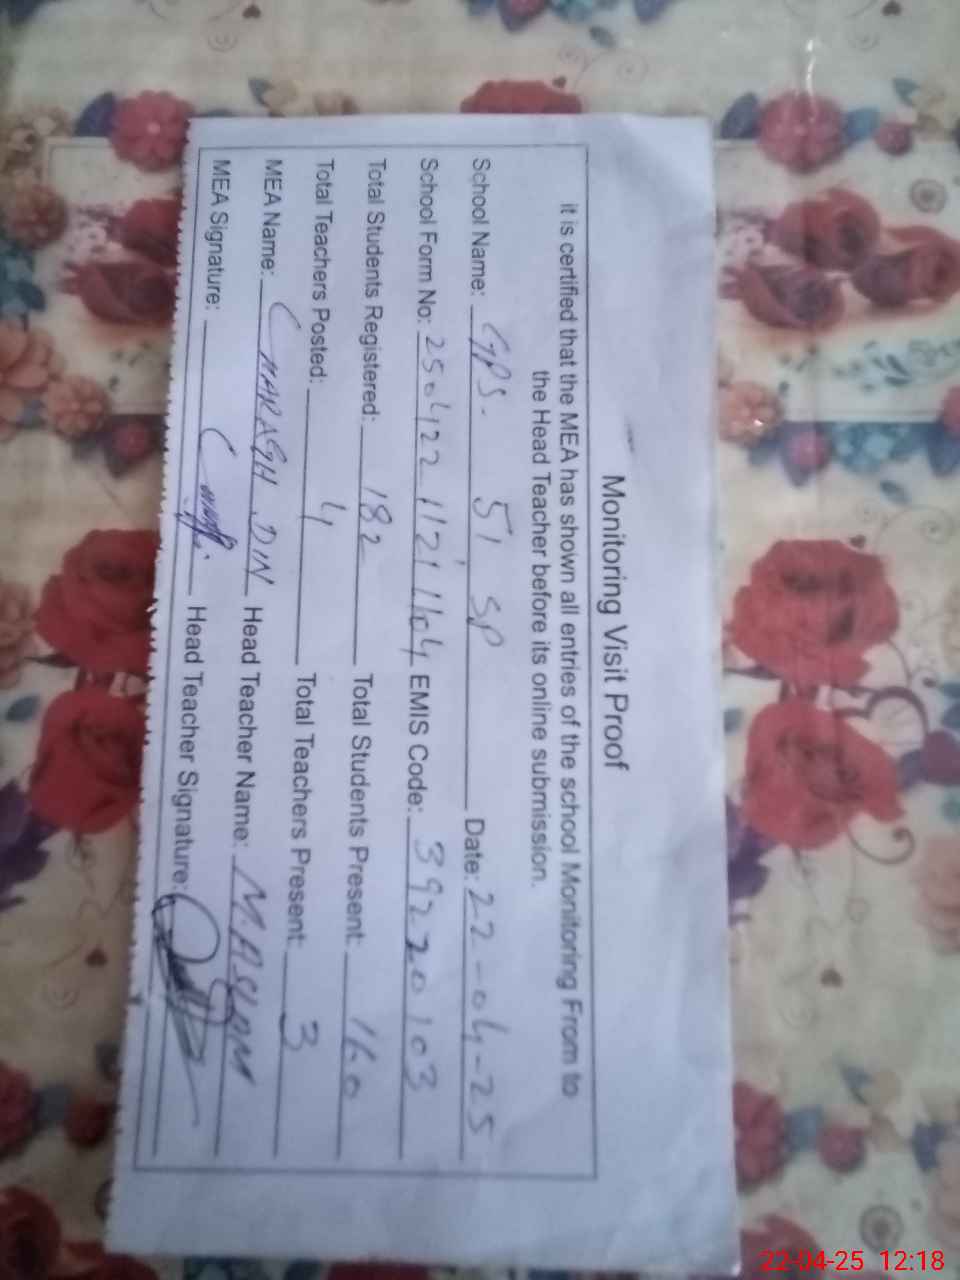 Monitoring Visit Proof
it is certified that the MEA has shown all entries of the school Monitoring From to
the Head Teacher before its online submission.
School Name: GPS. 51 SP Date: 22-04-25
School Form No: EMIS Code: 39220103
Total Students Registered: 182 Total Students Present: 160
Total Teachers Posted: 4 Total Teachers Present: 3
MEA Name: DIN Head Teacher Name: M. ASLAM
MEA Signature: Head Teacher Signature:
22-04-25 12:18